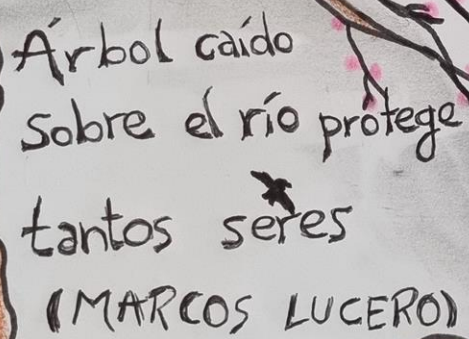 Árbol caído
sobre el río protege
tantos seres
(MARCOS LUCERO)